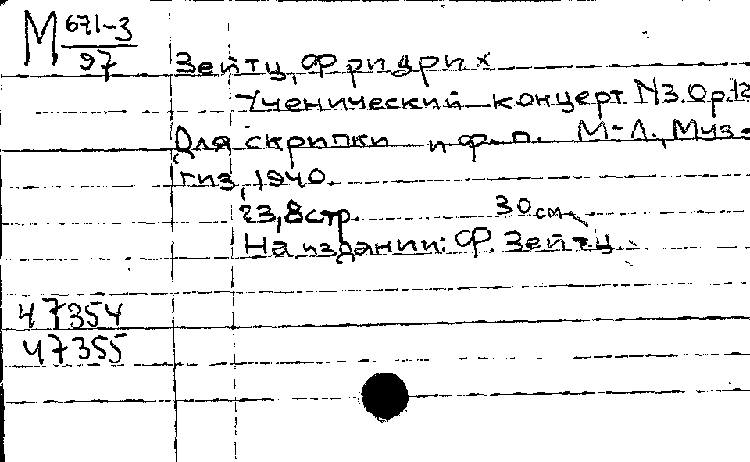 М 671-3
97
Зейтц, Фридрих
Ученический концерт N3. Op. 12
Для скрипки и ф.-п. М-Л., Музг
гиз, 1940.
23, 8 стр. 30 см
На издании: Ф. Зейтц
47354
47355